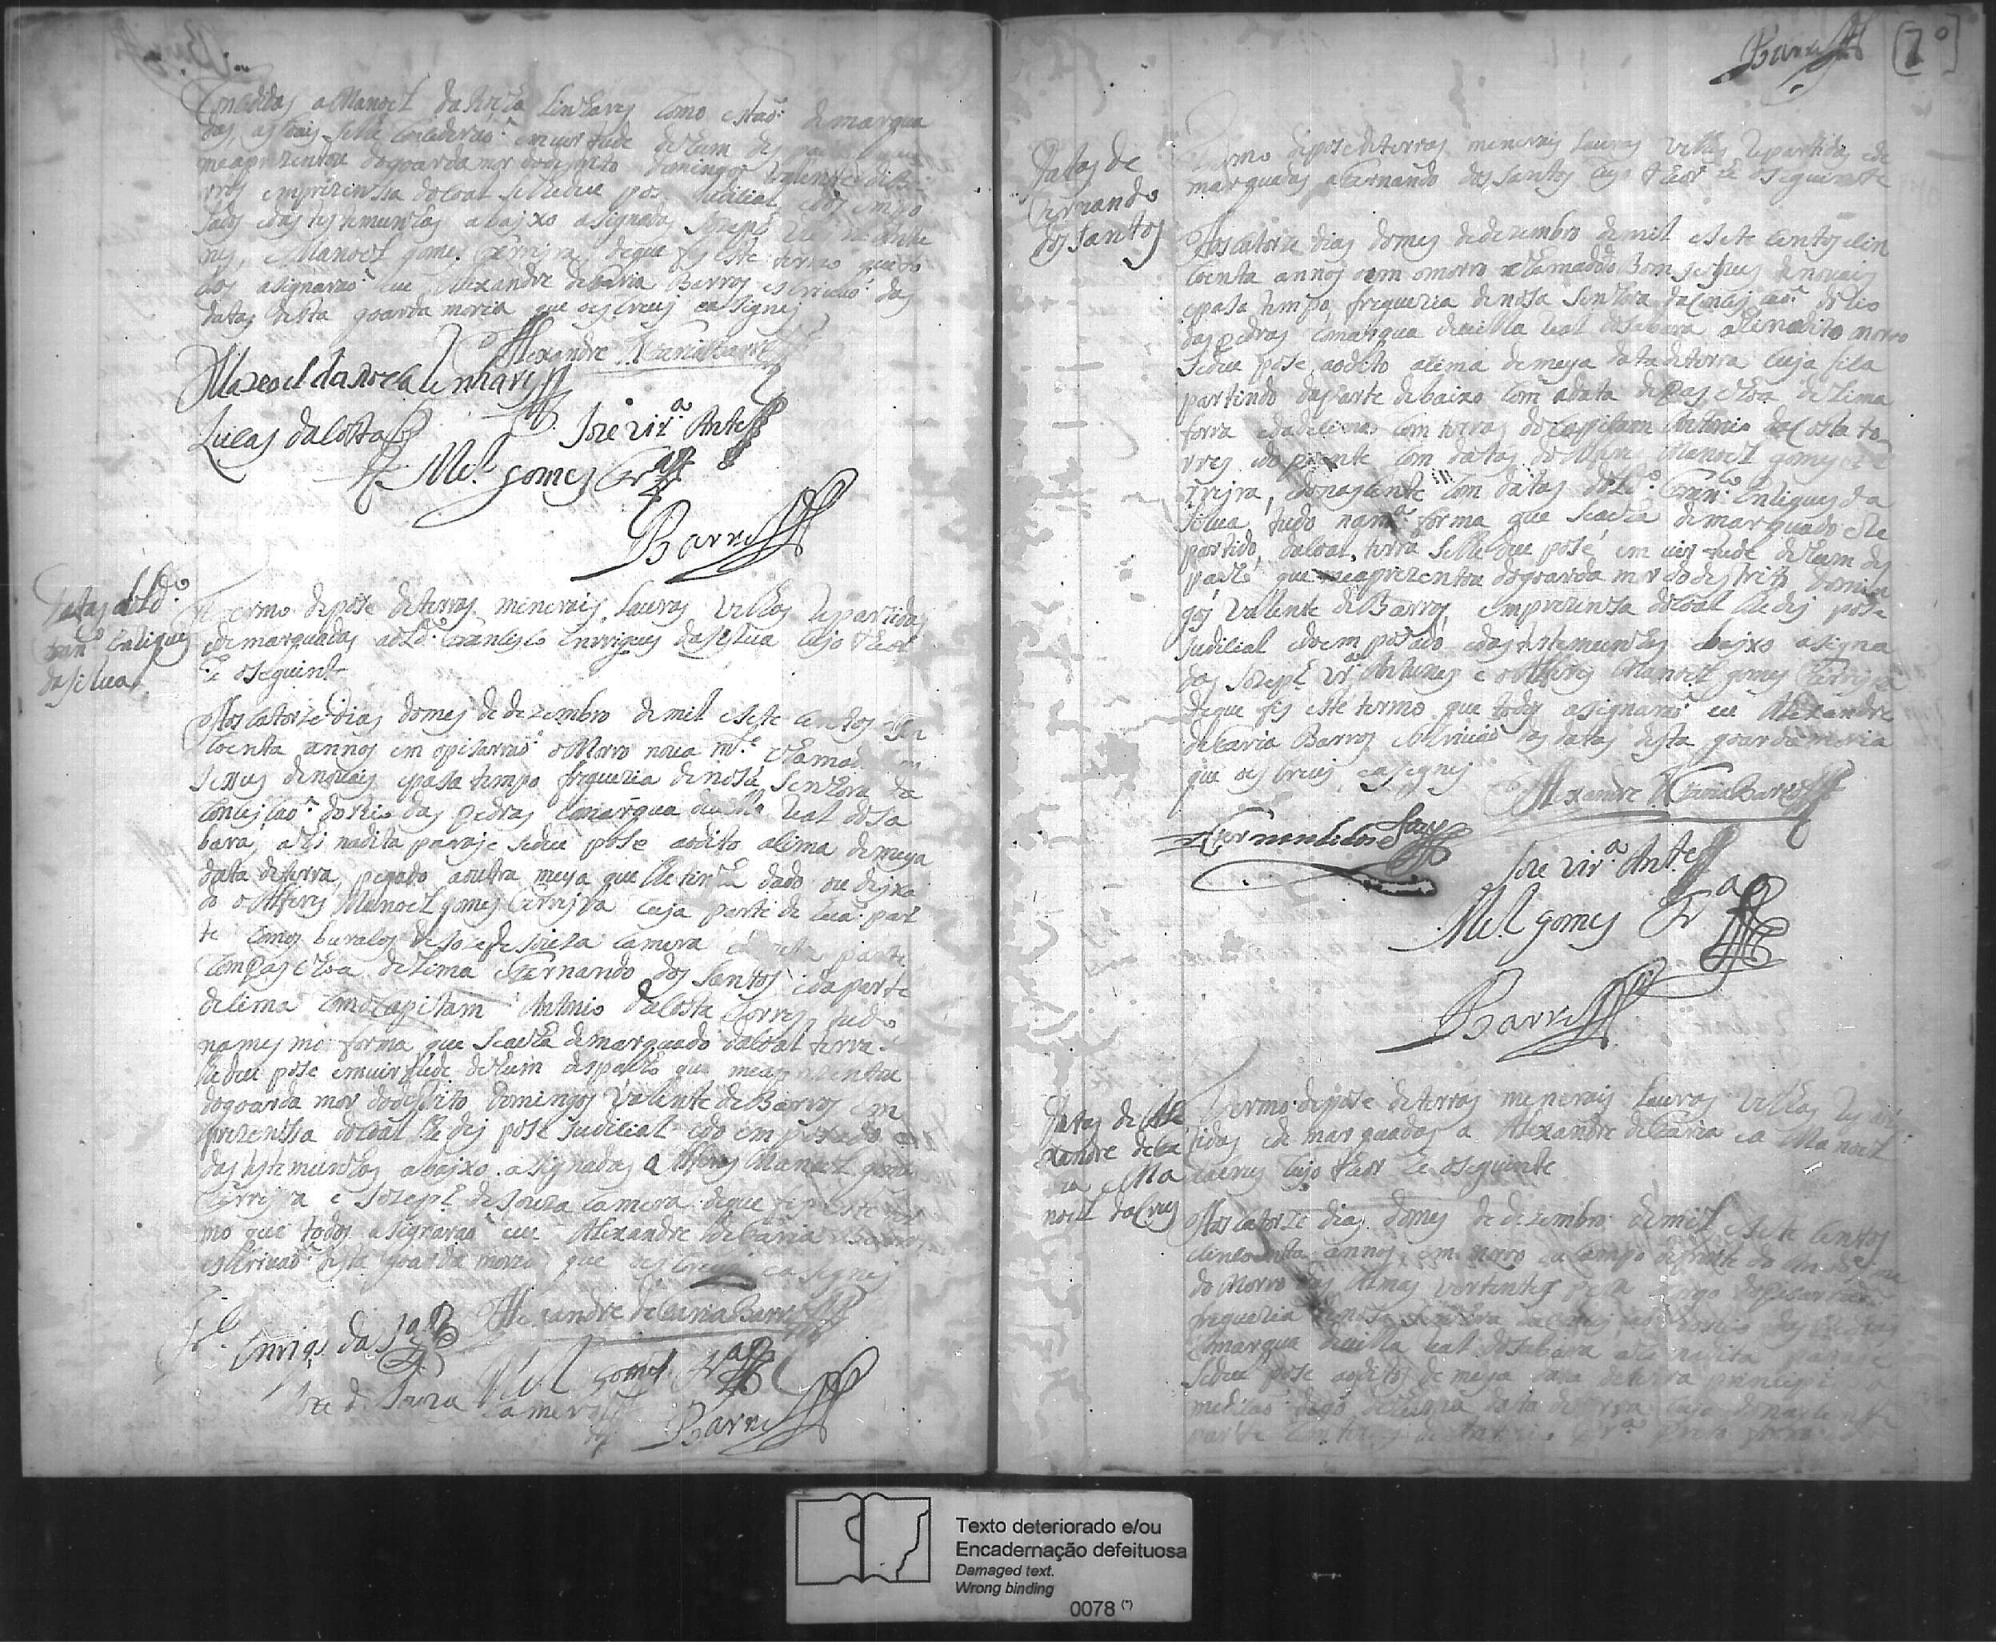 Concedidas a Manoel da Rocha Linhares como estaõ demarqua
das, as coais selhe concederaõ em vertude de hum des
me aprezentou do goarda mor do destrito Domingos Valente de Ba
rros em prezensa do coal se lhe deu pose Judicial edos empo
sados e das testemunhas abajxo asignadas Joseph Vieira Antu
nes, e Manoel gomes ferrejra de que fis este termo que to
dos asignaraõ eu Alexandre de faria Barros escrivaõ das
datas desta goarda moria que o escrevj e asignej
Alexandre de faria Barros
Manoel da Rocha Linhares
Lucas da Costa
Joze Vir.ª Antes
M.el gomes Fr.ª
Barros
Datas do L.do
Fran.co Enliques
da Silua
Termo de pose de terras menerais Lauras Velhas Repartidas
e demarquadas ao L.do Francisco Enrriques da Silua Cujo theor
he o seguint
Aos catorze dias do mes de dezembro de mil esete centos e sin
coenta annos em opisarraõ o Morro noua m.te chamado
Jezus de nouais epasa tempo freguezia de nosa Senhora da
Conseiçaõ do Rio das pedras Comarqua da villa Real do Sa
bara, ahi na dita paraje se deu pose ao dito asima de meya
data de terra, pegado a outra meya que lhe tinha dado ou dejxa
do o Alferes Manoel gomes ferrejra cuja parte de lua par
te com os buracos de Joze de Souza Camera e da outra parte
Com Paschoa de Lima e Fernando dos Santos e da parte
de sima Com o Capitam Antonio da Costa Torres tudo
na mesmo forma que se acha demarquado da coal terra
lhe deu pose em uirtude de hum despacho que me aprezentou
do goarda mor do destrito Domingos Valente de Barros em
prezensa do coal lhe dej pose Judicial e do emposado e
das testemunhas abajxo asignadas o Alferes Manoel gomes
ferrejra e Joseph de Souza Camera de que fis este ter
mo que todos asignaraõ eu Alexandre de faria Barros
escrivaõ desta goarda moria que o escrevj e asignej
Alexandre de faria Barros
Fr.co Enriqs. da S.ª
Joze de Souza Camera
M.el gomes Fr.ª
Barros
Barros
[7º]
Datas de
Fernando
dos Santos
Termo de pose de terras menerais Lauras Velhas Repartidas ede
marquadas a Fernando dos Santos Cujo theor he o seguinte
Aos catorze dias do mes de dezembro de mil esete centos e sin
coenta annos em o morro chamado do Bom Jezus de nouais
epasa tempo, freguezia de nosa Senhora da Conseiçaõ do Rio
das pedras Comarqua da villa Real do Sabara ahi no dito morro
Se deu pose ao dito asima de meya data de terra cuja fica
partindo da parte de baixo com a data de Paschoa de Lima
forra e da de sima com terras do Capitam Antonio da Costa to
rres e do poente com datas do Alferes Manoel gomes fe
rrejra, e do nascente com datas do L.do Fran.co Enliques da
Silua, tudo na m.ª forma que se acha demarquado e Re
partido, da coal terra se lhe deu pose em uirtude de hum des
pacho que me aprezentou do goarda mor do destrito Domin
gos Vallente de Barros em prezensa do coal lhe dej pose
Judicial e do emposado, e das testemunhas abajxo asigna
das Joseph Vr.ª Antunes e o Alferes Manoel gomes Ferrejra
de que fis este termo que todos asignaraõ eu Alexandre
de faria Barros escrivaõ das datas desta goarda moria
que o escrevj e asignej
Alexandre de faria Barros
Fernando dos Santos
Joze Vir.ª Antes
M.el gomes Fr.ª
Barros
Datas de Ale
xandre de fa
ria e Ma
noel da Crus
Termo de pose de terras menerais Lauras Velhas Repar
tidas e demarquadas a Alexandre de faria e a Manoel
da Crus Cujo theor he o seguinte
Aos catorze dias do mes de dezembro de mil esete centos
e sincoenta annos em morro e Campo defronte do
do Morro das Almas vertentes
freguezia de nosa Senhora da Conseiçaõ do Rio das Pedras
Comarqua da villa Real do Sabara ahi na dita paraje
Se deu pose ao ditos de meya data de terra
data de terra
parte
Texto deteriorado e/ou
Encadernação defeituosa
Damaged text.
Wrong binding
0078 (*)